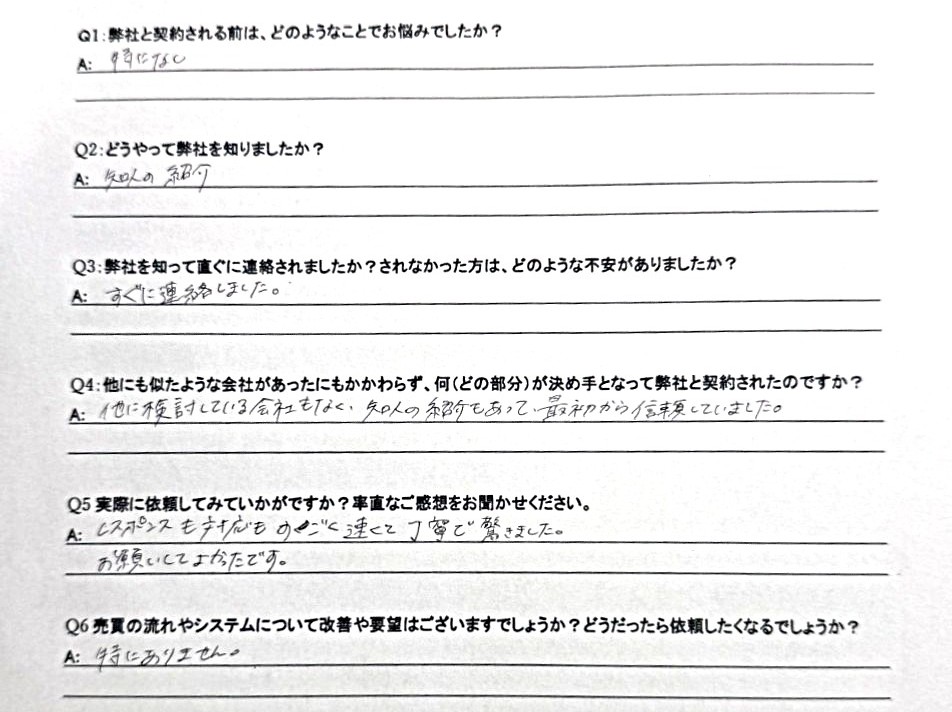 Q1:弊社と契約される前は、どのようなことでお悩みでしたか?
A: 特になし
Q2:どうやって弊社を知りましたか?
A: 知人の紹介
Q3:弊社を知って直ぐに連絡されましたか?されなかった方は、どのような不安がありましたか?
A: すぐに連絡しました。
Q4:他にも似たような会社があったにもかかわらず、何(どの部分)が決め手となって弊社と契約されたのですか?
A: 他に検討している会社もなく、知人の紹介もあって、最初から信頼していました。
Q5 実際に依頼してみていかがですか?率直なご感想をお聞かせください。
A: レスポンスも対応もものすごく速くて丁寧で驚きました。
お願いしてよかったです。
Q6 売買の流れやシステムについて改善や要望はございますでしょうか?どうだったら依頼したくなるでしょうか?
A: 特にありません。